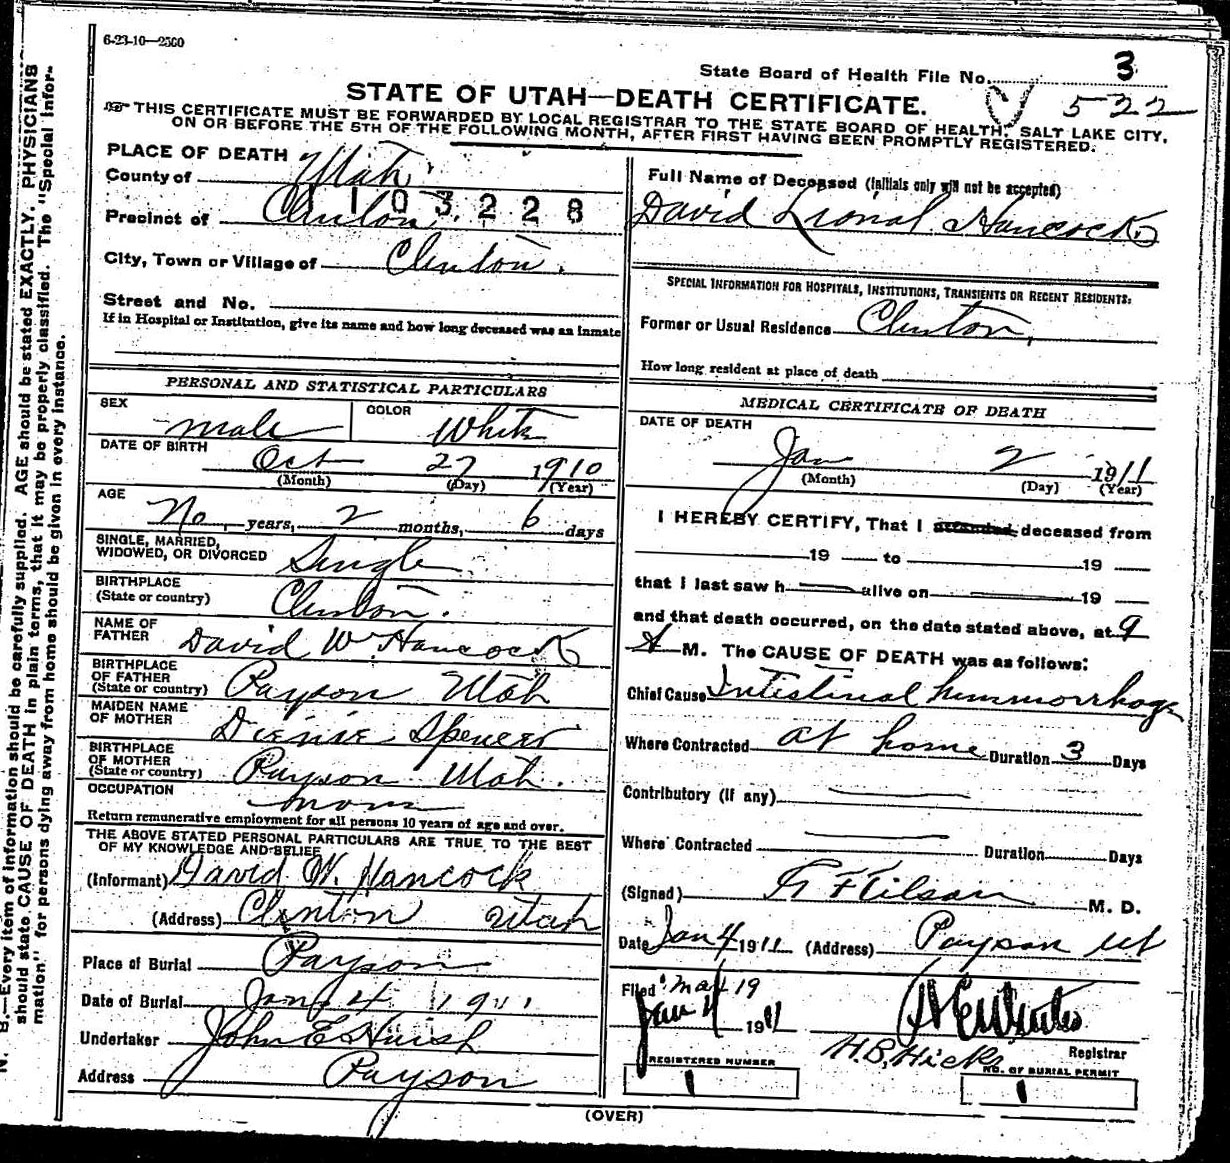 6-23-10—2500
State Board of Health File No. 3
522
STATE OF UTAH—DEATH CERTIFICATE.
THIS CERTIFICATE MUST BE FORWARDED BY LOCAL REGISTRAR TO THE STATE BOARD OF HEALTH, SALT LAKE CITY,
ON OR BEFORE THE 5TH OF THE FOLLOWING MONTH, AFTER FIRST HAVING BEEN PROMPTLY REGISTERED.
N. B.—Every item of information should be carefully supplied. AGE should be stated EXACTLY. PHYSICIANS
should state CAUSE OF DEATH in plain terms, that it may be properly classified. The "Special Infor-
mation" for persons dying away from home should be given in every instance.
PLACE OF DEATH
County of Utah
1103228
Precinct of Clinton.
City, Town or Village of Clinton.
Street and No.
If in Hospital or Institution, give its name and how long deceased was an inmate
PERSONAL AND STATISTICAL PARTICULARS
SEX male COLOR White
DATE OF BIRTH
Oct 27 1910
(Month) (Day) (Year)
AGE
No years, 2 months, 6 days
SINGLE, MARRIED,
WIDOWED, OR DIVORCED Single
BIRTHPLACE
(State or country) Clinton.
NAME OF
FATHER David W Hancock
BIRTHPLACE
OF FATHER
(State or country) Payson Utah
MAIDEN NAME
OF MOTHER Spencer
BIRTHPLACE
OF MOTHER
(State or country) Payson Utah.
OCCUPATION
Return remunerative employment for all persons 10 years of age and over.
THE ABOVE STATED PERSONAL PARTICULARS ARE TRUE TO THE BEST
OF MY KNOWLEDGE AND BELIEF
(Informant) David W. Hancock
(Address) Clinton Utah
Place of Burial Payson
Date of Burial Jan 4 1911
Undertaker John E Huish
Address Payson
Full Name of Deceased (initials only will not be accepted)
David Lional Hancock
SPECIAL INFORMATION FOR HOSPITALS, INSTITUTIONS, TRANSIENTS OR RECENT RESIDENTS:
Former or Usual Residence Clinton,
How long resident at place of death
MEDICAL CERTIFICATE OF DEATH
DATE OF DEATH
Jan 2 1911
(Month) (Day) (Year)
I HEREBY CERTIFY, That I attended deceased from
19 to 19
that I last saw h alive on 19
and that death occurred, on the date stated above, at 9
A M. The CAUSE OF DEATH was as follows:
Chief Cause Intestinal hemmorrhage
Where Contracted at home Duration 3 Days
Contributory (if any)
Where Contracted Duration Days
(Signed) M. D.
Date Jan 4 1911 (Address) Payson Ut
Filed
Jan 4 1911
H.B. Hicks Registrar
REGISTERED NUMBER
1
NO. OF BURIAL PERMIT
1
(OVER)